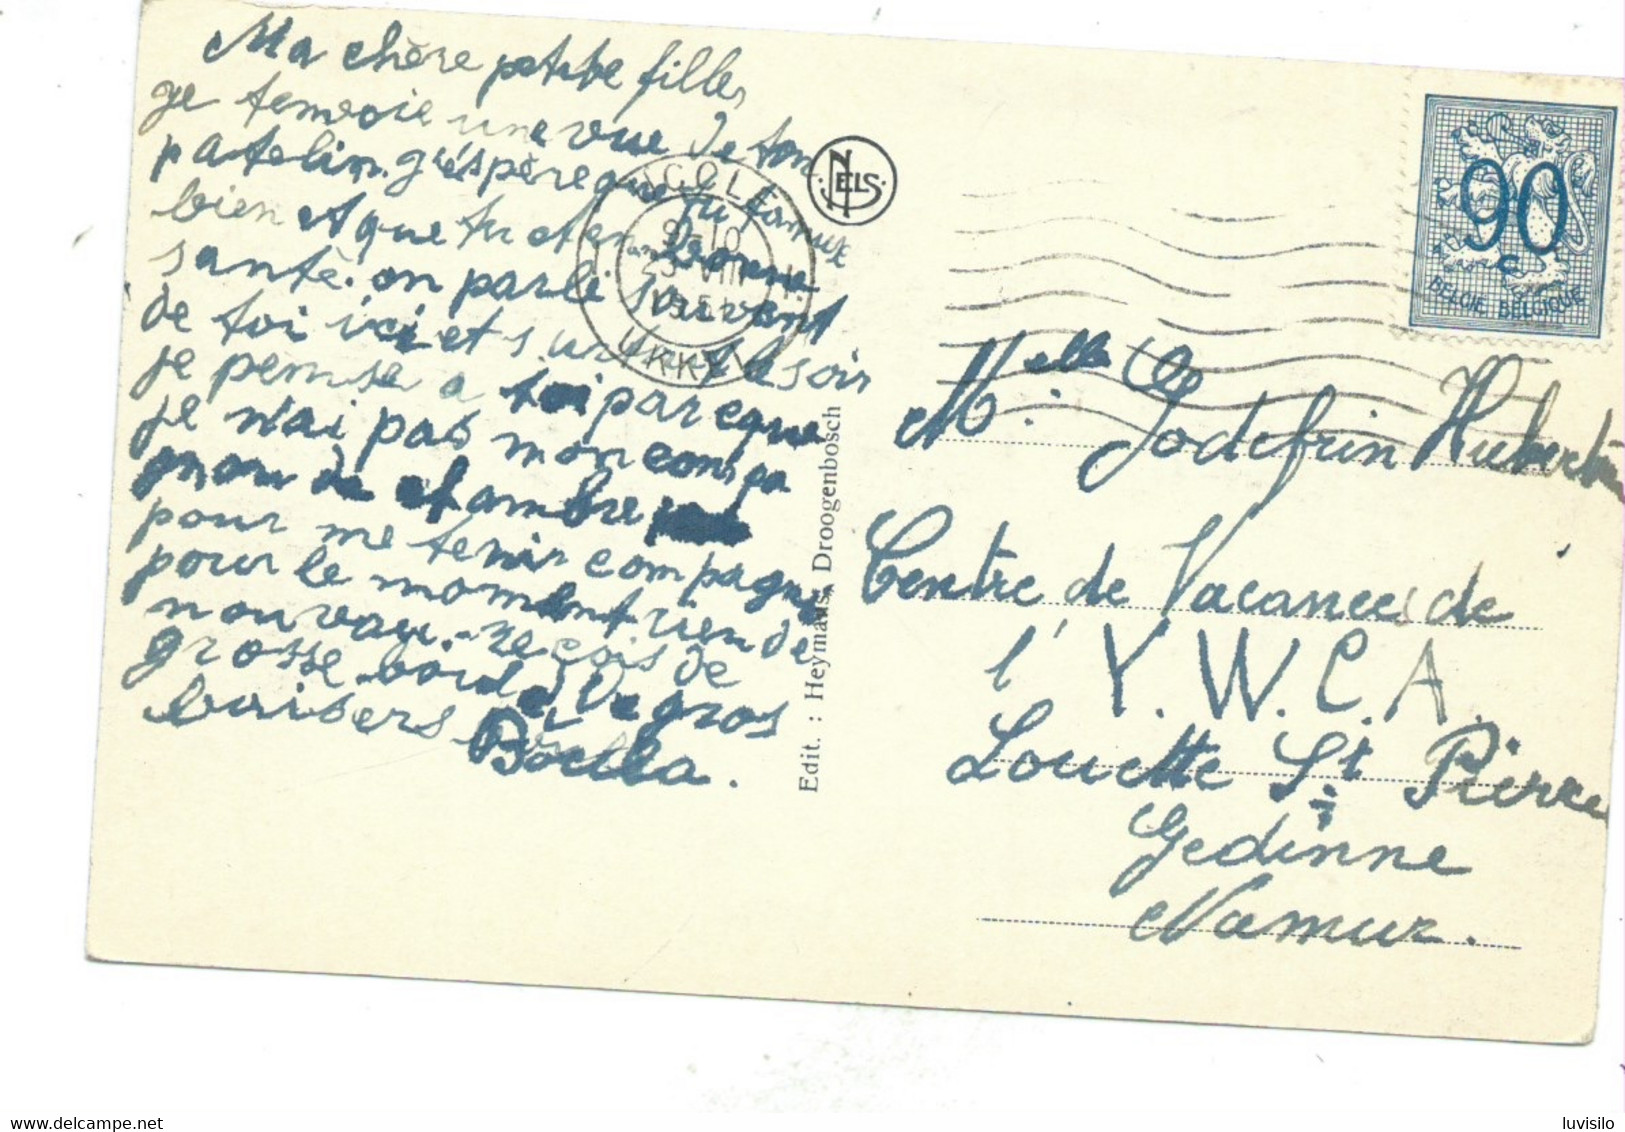 Ma chère petite fille,
je t'envoie une vue de ton
patelin. j'éspère que tu t'amuse
bien et que tu et en bonne
santé. on parle souvent
de toi ici et surtout le soir
je pense a toi parceque
je n'ai pas mon
de chambre
pour me tenir compagne
pour le moment rien de
nouvau. recois de
grosse de gros
baisers
NELS
UCCLE
9-10
VIII
UKKEL
Edit. : Heymans, Droogenbosch
90
BELGIE BELGIQUE
Melle Godefrin Hubertine
Centre de Vacances de
l'Y.W.C.A.
Louette St Pierre
Gedinne
Namur.
luvisilo